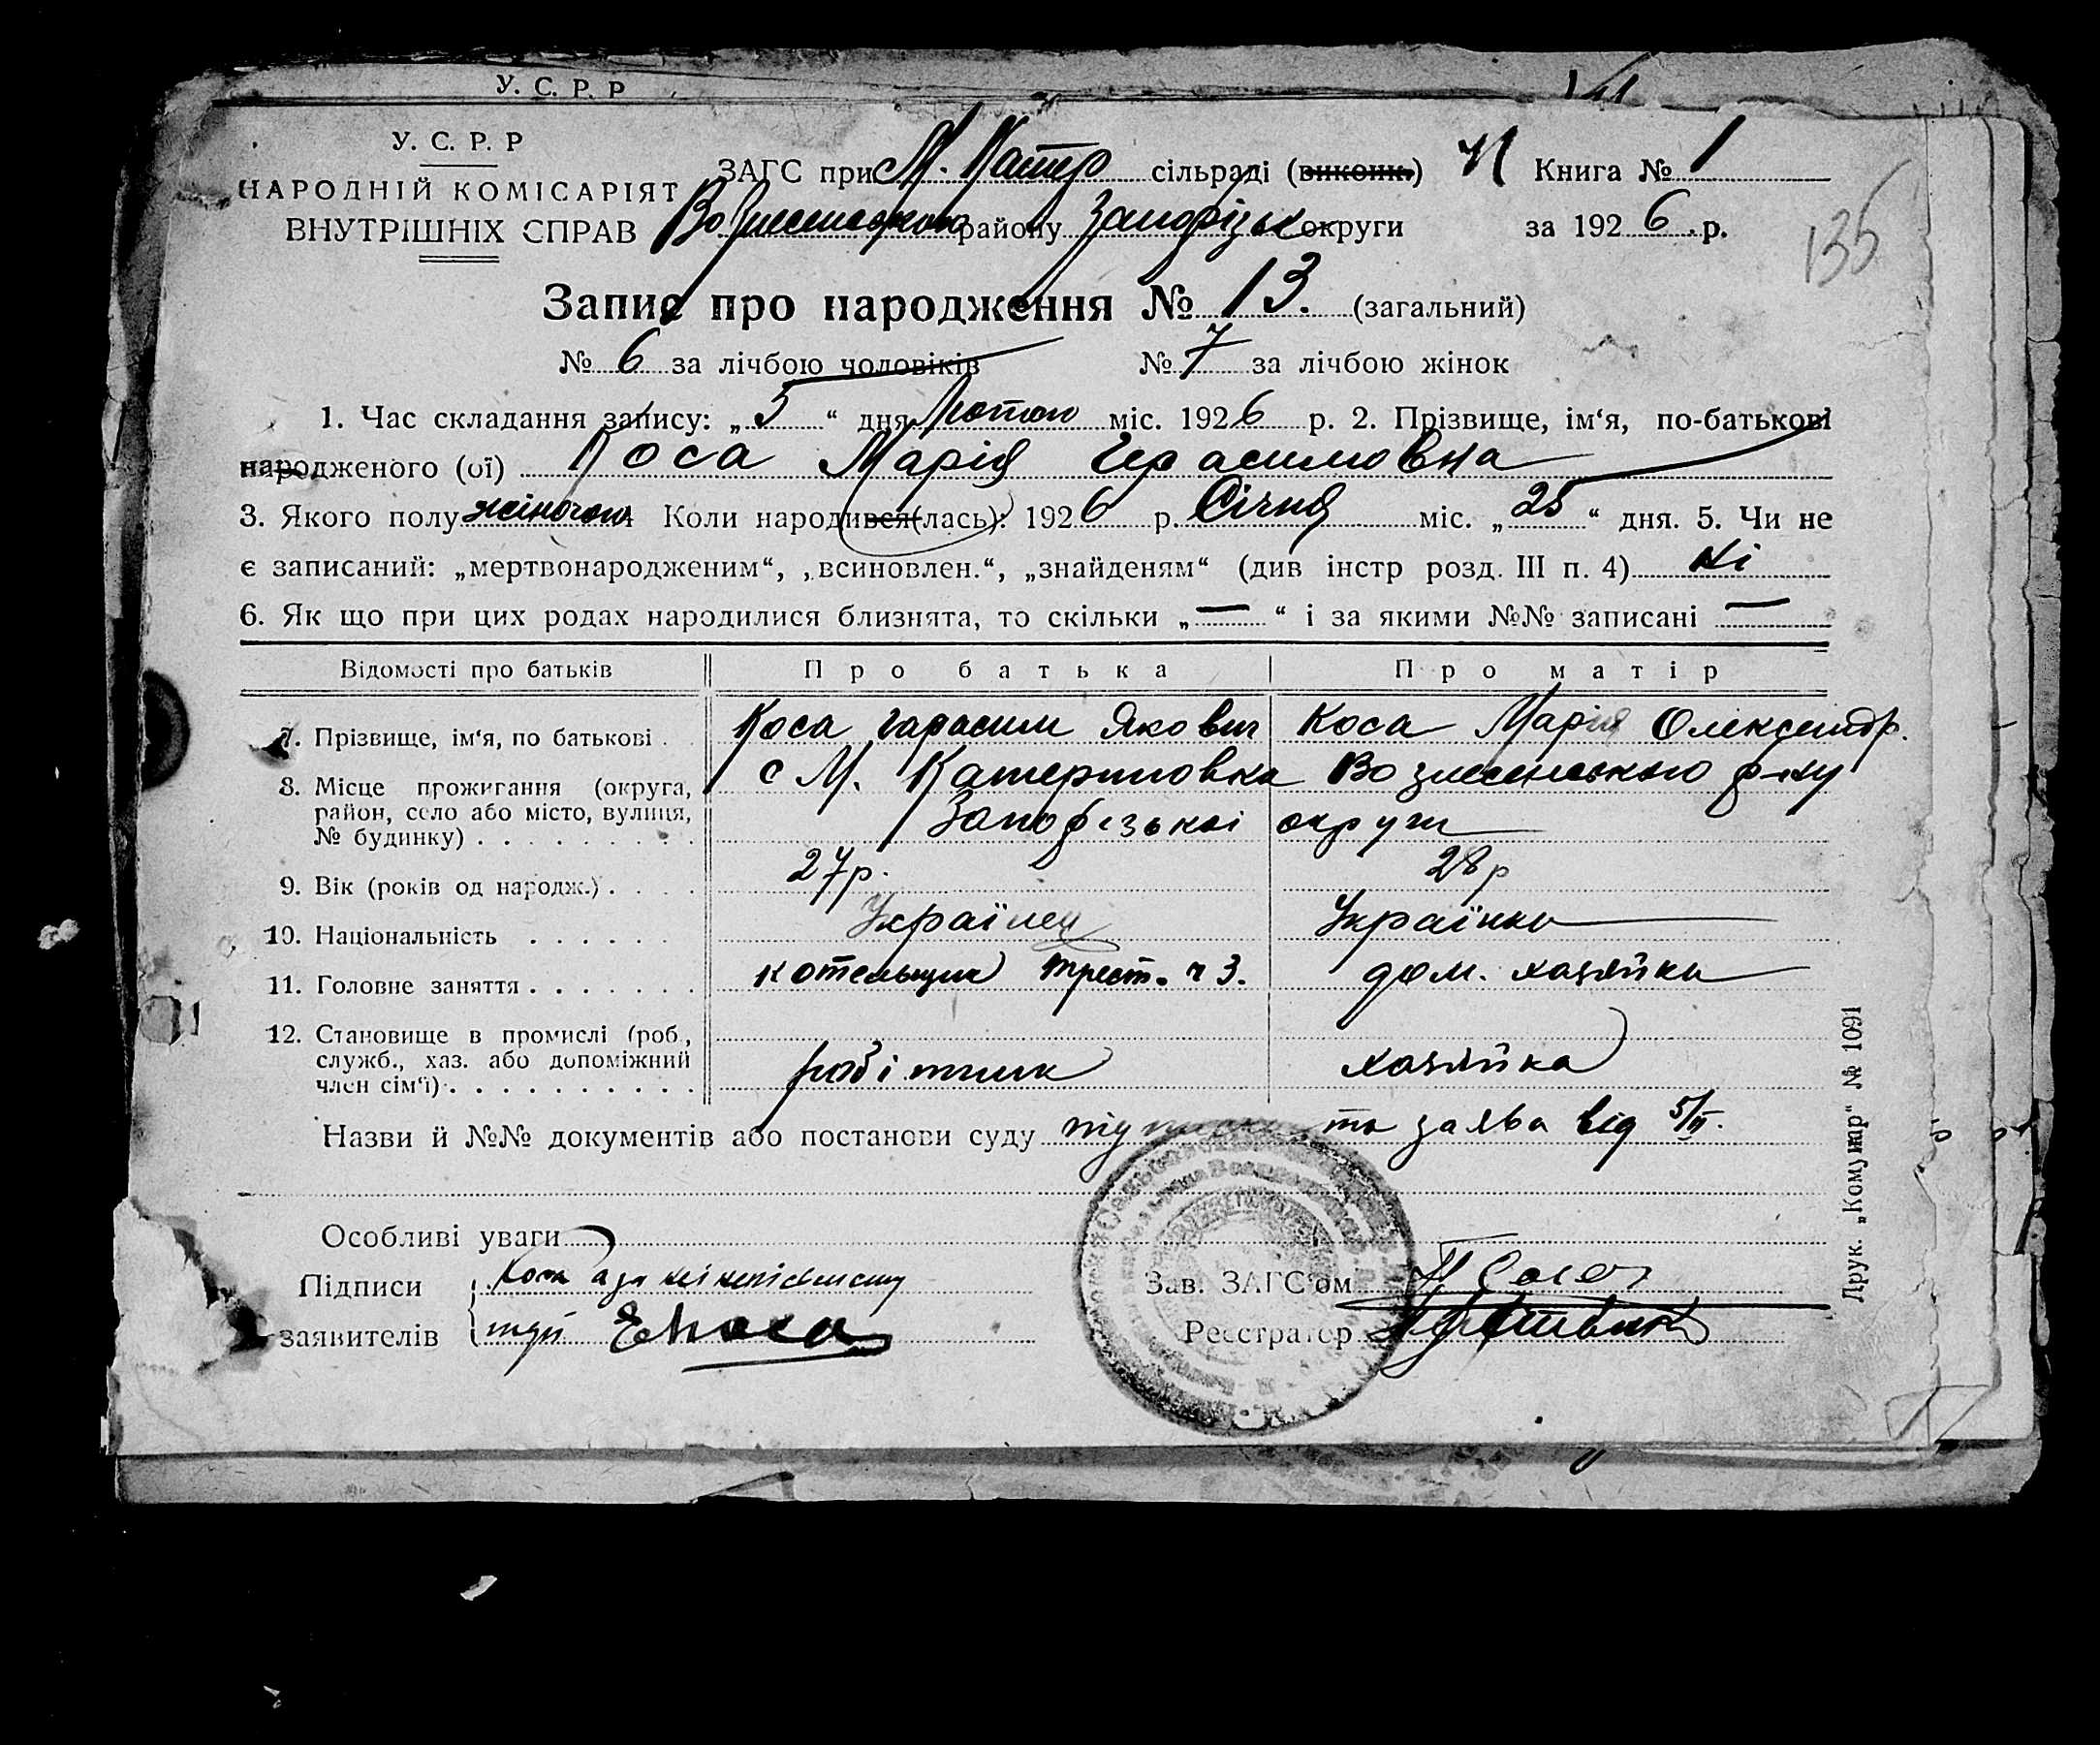 У. С. Р. Р
У. С. Р. Р
НАРОДНІЙ КОМІСАРІЯТ
ВНУТРІШНІХ СПРАВ
ЗАГС при М. Катер сільраді (виконк.) Книга № 1
району Запоріськ округи за 1926.р.
135
Запис про народження № 13. (загальний)
№ 6 за лічбою чоловіків № 7 за лічбою жінок
1. Час складання запису: „ 5 “ дня Лютого міс. 1926 р. 2. Прізвище, ім‘я, по-батькові
народженого (ої) Коса Марія Герасимовна
3. Якого полу жіночого 4 Коли народився(лась): 1926 р. Січня міс. „ 25 “ дня. 5. Чи не
є записаний: „мертвонародженим“, „всиновлен.“, „знайденям“ (див інстр розд. III п. 4) Ні
6. Як що при цих родах народилися близнята, то скільки „ — “ і за якими №№ записані —
Відомості про батьків Про батька Про матір
7. Прізвище, ім‘я, по батькові Коса Гарасим Якович Коса Марія Олександр.
8. Місце прожигання (округа, с М. Катериновка Вознесенського р-ну
район, село або місто, вулиця, Запорізької округи
№ будинку)
9. Вік (років од народж.) 27р. 28р
10. Національність Українец Українка
11. Головне заняття котельщик трест. ч 3. дом. хазяйка
12. Становище в промислі (роб.,
служб., хаз. або допоміжний робітник хазяйка
член сім‘ї)
Назви й №№ документів або постанови суду та заява від 5/II.
Особливі уваги
Підписи Коса а за неї неписьмену
заявителів Коса
Зав. ЗАГС‘ом
Реєстратор
Друк. „Комунар“ № 1091